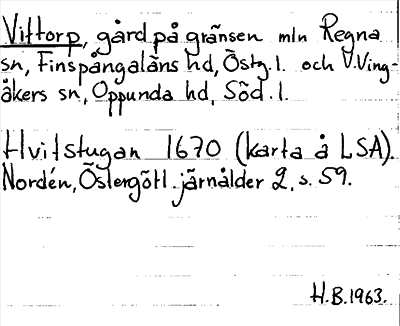 Vittorp, gård på gränsen mln Regna
sn, Finspångaläns hd, Östg. l. och V. Ving-
åkers sn, Oppunda hd, Söd. l.
Hvitstugan 1670 (karta å LSA).
Nordén, Östergötl. järnålder 2, s. 59.
H.B. 1963.